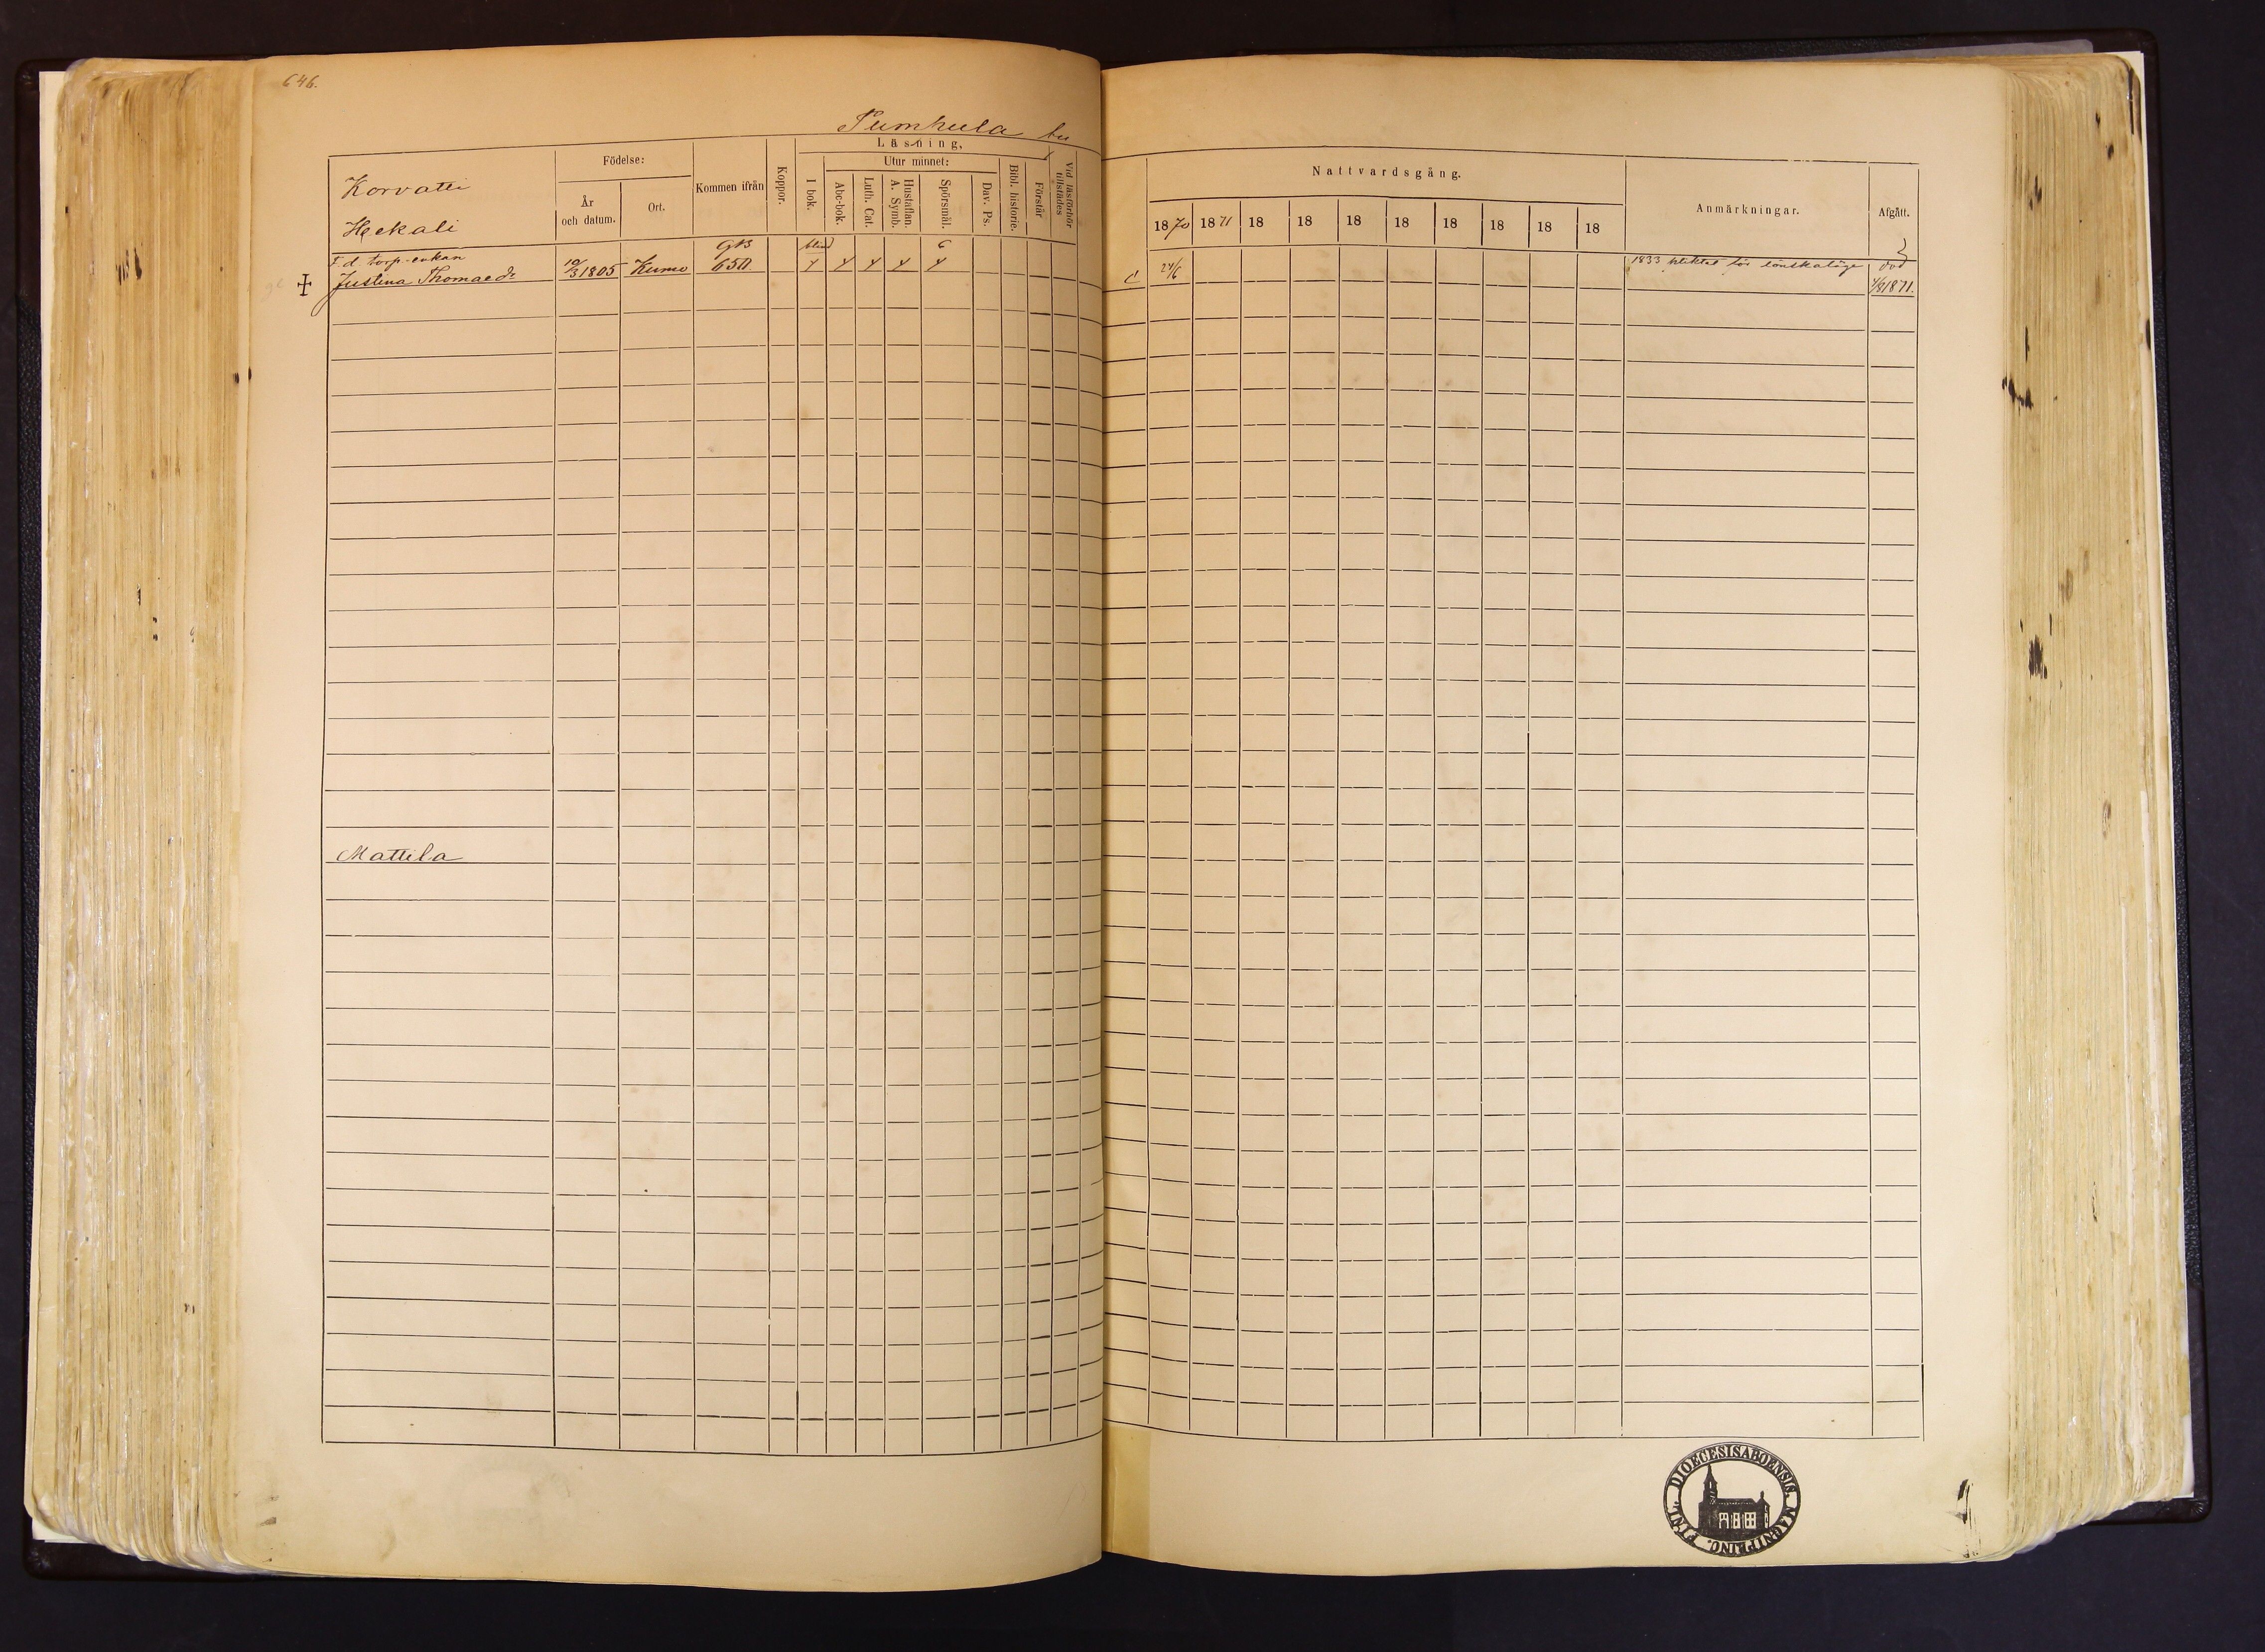 646.
Pumkula by
Läsning,
Födelse:
Utur minnet:
Korvatti
Heckali
År
och datum.
Ort.
Kommen ifrån
Koppor.
I bok.
Abc-bok.
Luth. Cat.
Hustaflan.
A. Symb.
Spörsmål.
Dav. Ps.
Bibl. historie.
Förstår
Vid läsförhör
tillstädes
Nattvardsgång.
1870 1871 18 18 18 18 18 18 18 18
Anmärkningar.
Afgått.
F. d. torp.enkan
Justina Thomaedr
10/3 1805
Kumo
GB
650
blind
c
24/6
1833 pliktat för lönskaläge
död
4/8 1871.
Mattila
FINL. DIOECESIS ABOENSIS. MAGNI PRINC.